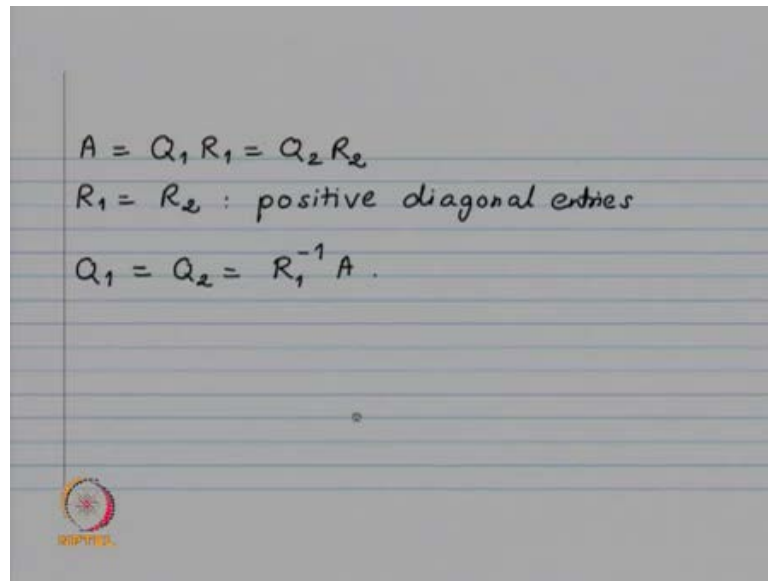 A = Q₁ R₁ = Q₂ R₂
R₁ = R₂ : positive diagonal entries
Q₁ = Q₂ = R₁⁻¹ A .